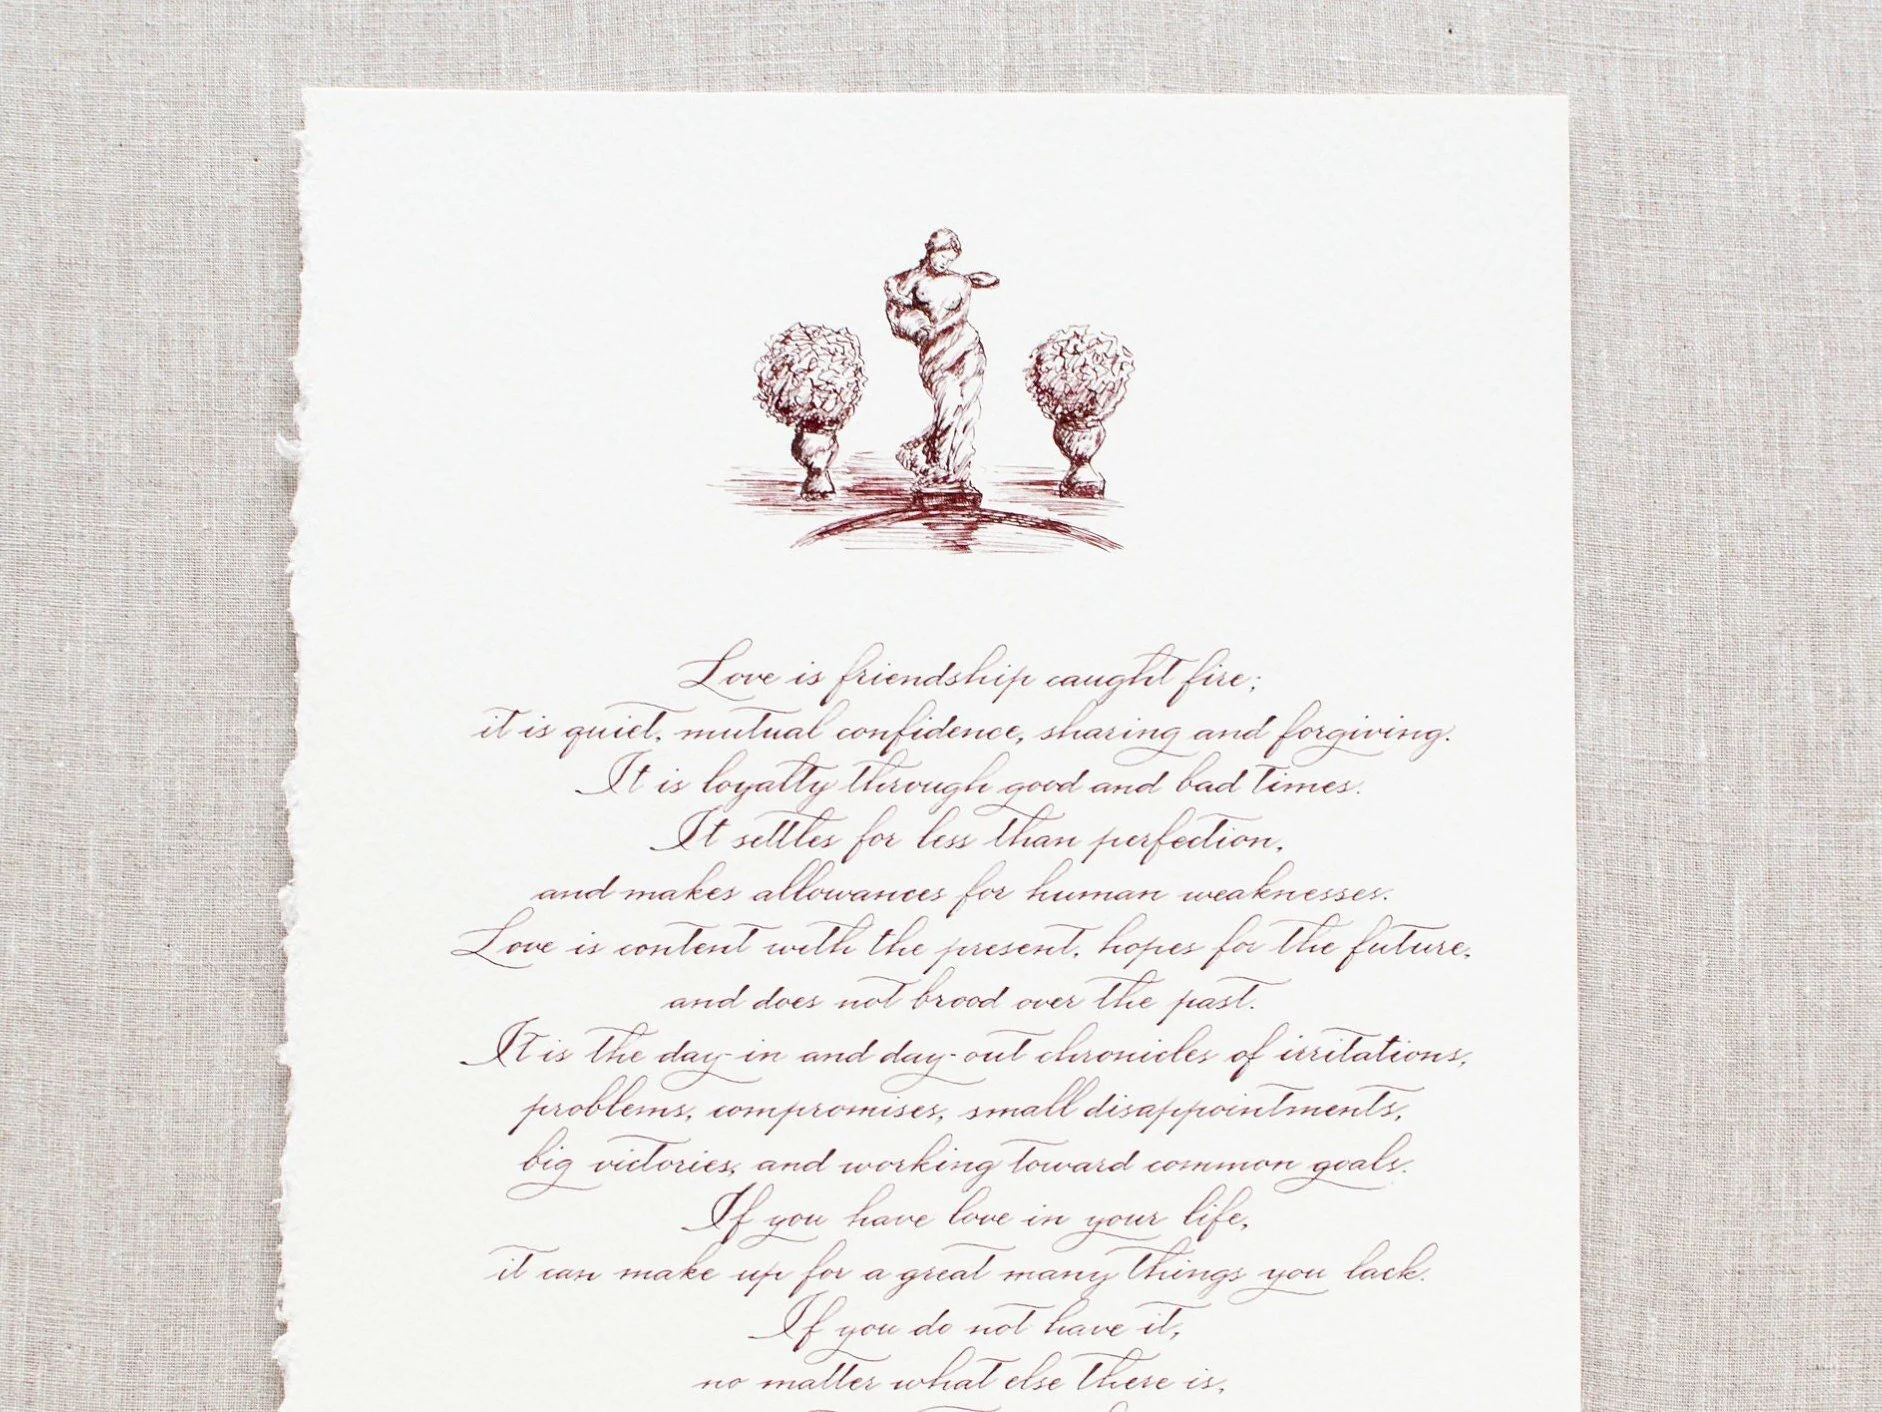 Love is friendship caught fire;
it is quiet, mutual confidence, sharing and forgiving.
It is loyalty through good and bad times.
It settles for less than perfection,
and makes allowances for human weaknesses.
Love is content with the present, hopes for the future,
and does not brood over the past.
It is the day-in and day-out chronicles of irritations,
problems, compromises, small disappointments,
big victories, and working toward common goals.
If you have love in your life,
it can make up for a great many things you lack.
If you do not have it,
no matter what else there is,